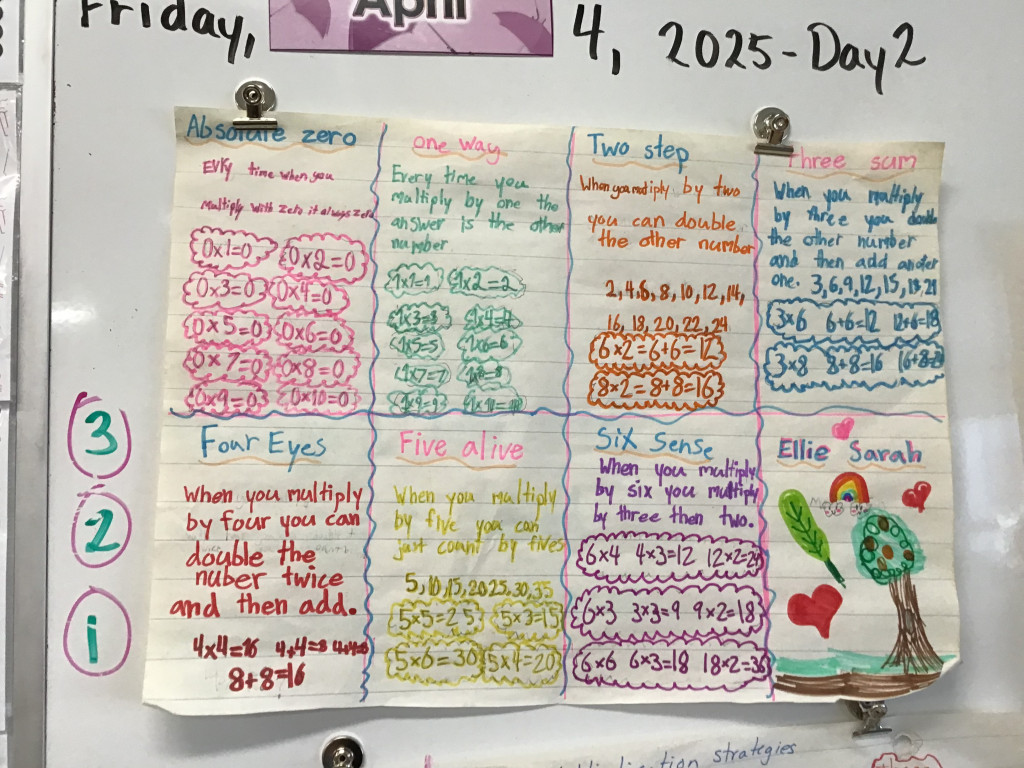 Friday, April 4, 2025-Day2
Absolute zero
Evry time when you
multiply with zero it always zero
0x1=0 0x2=0
0x3=0 0x4=0
0x5=0 0x6=0
0x7=0 0x8=0
0x9=0 0x10=0
one way
Every time you
multiply by one the
answer is the other
number.
1x1=1 1x2=2
1x3=3 1x4=4
1x5=5 1x6=6
1x7=7 1x8=8
1x9=9 1x10=10
Two step
When you multiply by two
you can double
the other number
2,4,6,8,10,12,14,
16,18,20,22,24
6x2=6+6=12
8x2=8+8=16
three sum
When you multiply
by three you double
the other number
and then add anoter
one. 3,6,9,12,15,18,21
3x6 6+6=12 12+6=18
3x8 8+8=16 16+8=24
Four Eyes
When you multiply
by four you can
double the
nuber twice
and then add.
4x4=16 4+4=8 4+4=8
8+8=16
Five alive
When you multiply
by five you can
just count by fives
5,10,15,20,25,30,35
5x5=25 5x3=15
5x6=30 5x4=20
Six Sense
When you multiply
by six you multiply
by three then two.
6x4 4x3=12 12x2=24
6x3 3x3=9 9x2=18
6x6 6x3=18 18x2=36
Ellie Sarah
3
2
1
strategies